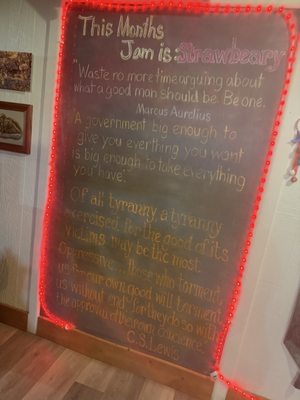 This Months
Jam is: Strawbeary
"Waste no more time arguing about
what a good man should be. Be one.
Marcus Aurelius
"A government big enough to
give you everthing you want
is big enough to take everything
you have".
Of all tyranny, a tyranny
exercised for the good of its
victims may be the most
Oppressive... those who torment
us for our own good will torment
us without end for they do so with
the approval of their own conscience."
C.S. Lewis